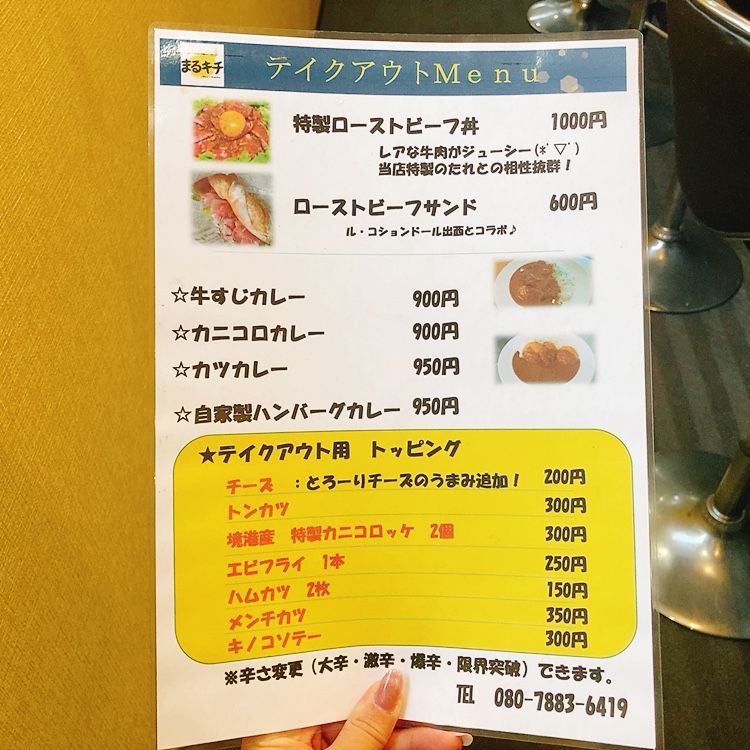 まるキチ
テイクアウトMenu
特製ローストビーフ丼 1000円
レアな牛肉がジューシー(*ﾟ▽ﾟ)
当店特製のたれとの相性抜群！
ローストビーフサンド 600円
ル・コションドール出西とコラボ♪
☆牛すじカレー 900円
☆カニコロカレー 900円
☆カツカレー 950円
☆自家製ハンバーグカレー 950円
★テイクアウト用 トッピング
チーズ ：とろーりチーズのうまみ追加！ 200円
トンカツ 300円
境港産 特製カニコロッケ 2個 300円
エビフライ 1本 250円
ハムカツ 2枚 150円
メンチカツ 350円
キノコソテー 300円
※辛さ変更（大辛・激辛・爆辛・限界突破）できます。
TEL 080-7883-6419